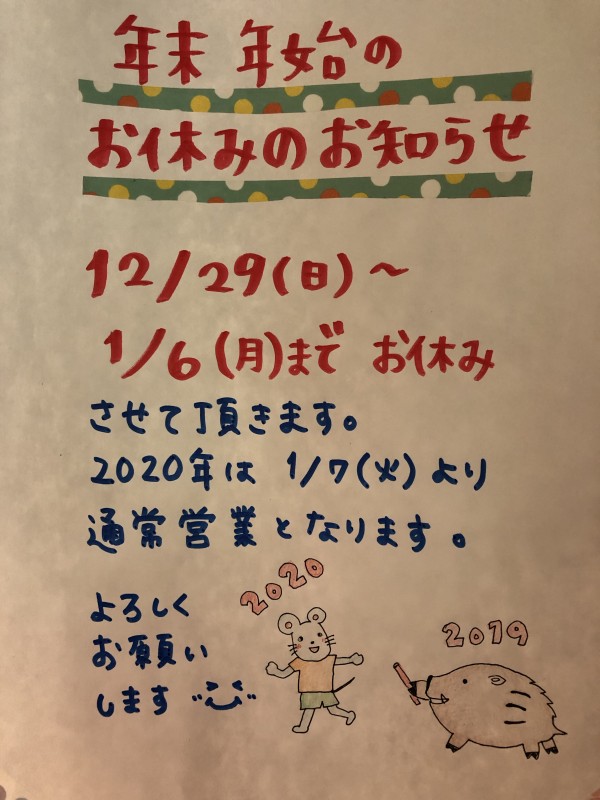 年末年始の
お休みのお知らせ
12/29(日)～
1/6(月)まで お休み
させて頂きます。
2020年は 1/7(火)より
通常営業となります。
よろしく
お願い
します
2020
2019